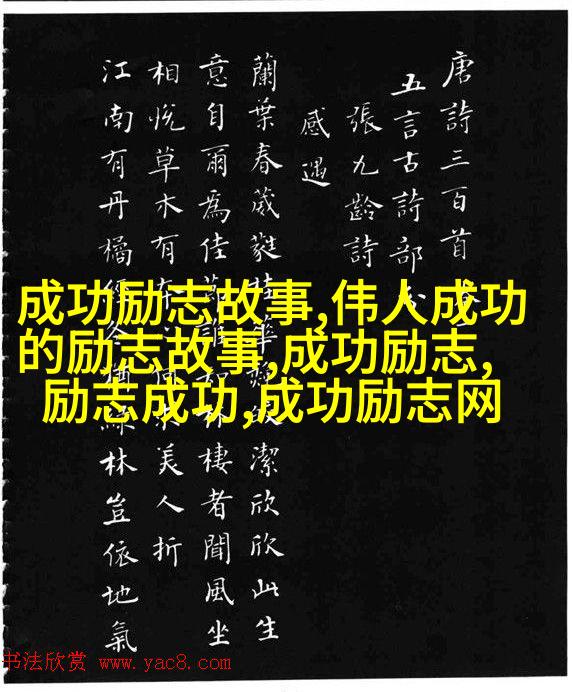 唐詩三百首
五言古詩部分
張九齡詩
感遇
蘭葉春葳蕤桂華皎潔欣欣此生
意自爾爲佳節誰知林棲者聞風坐
相悅草木有本心何求美人折
江南有丹橘經冬猶綠林豈依地氣
成功励志故事,伟人成功
的励志故事,成功励志,
励志成功,成功励志网
书法欣赏 www.yac8.com